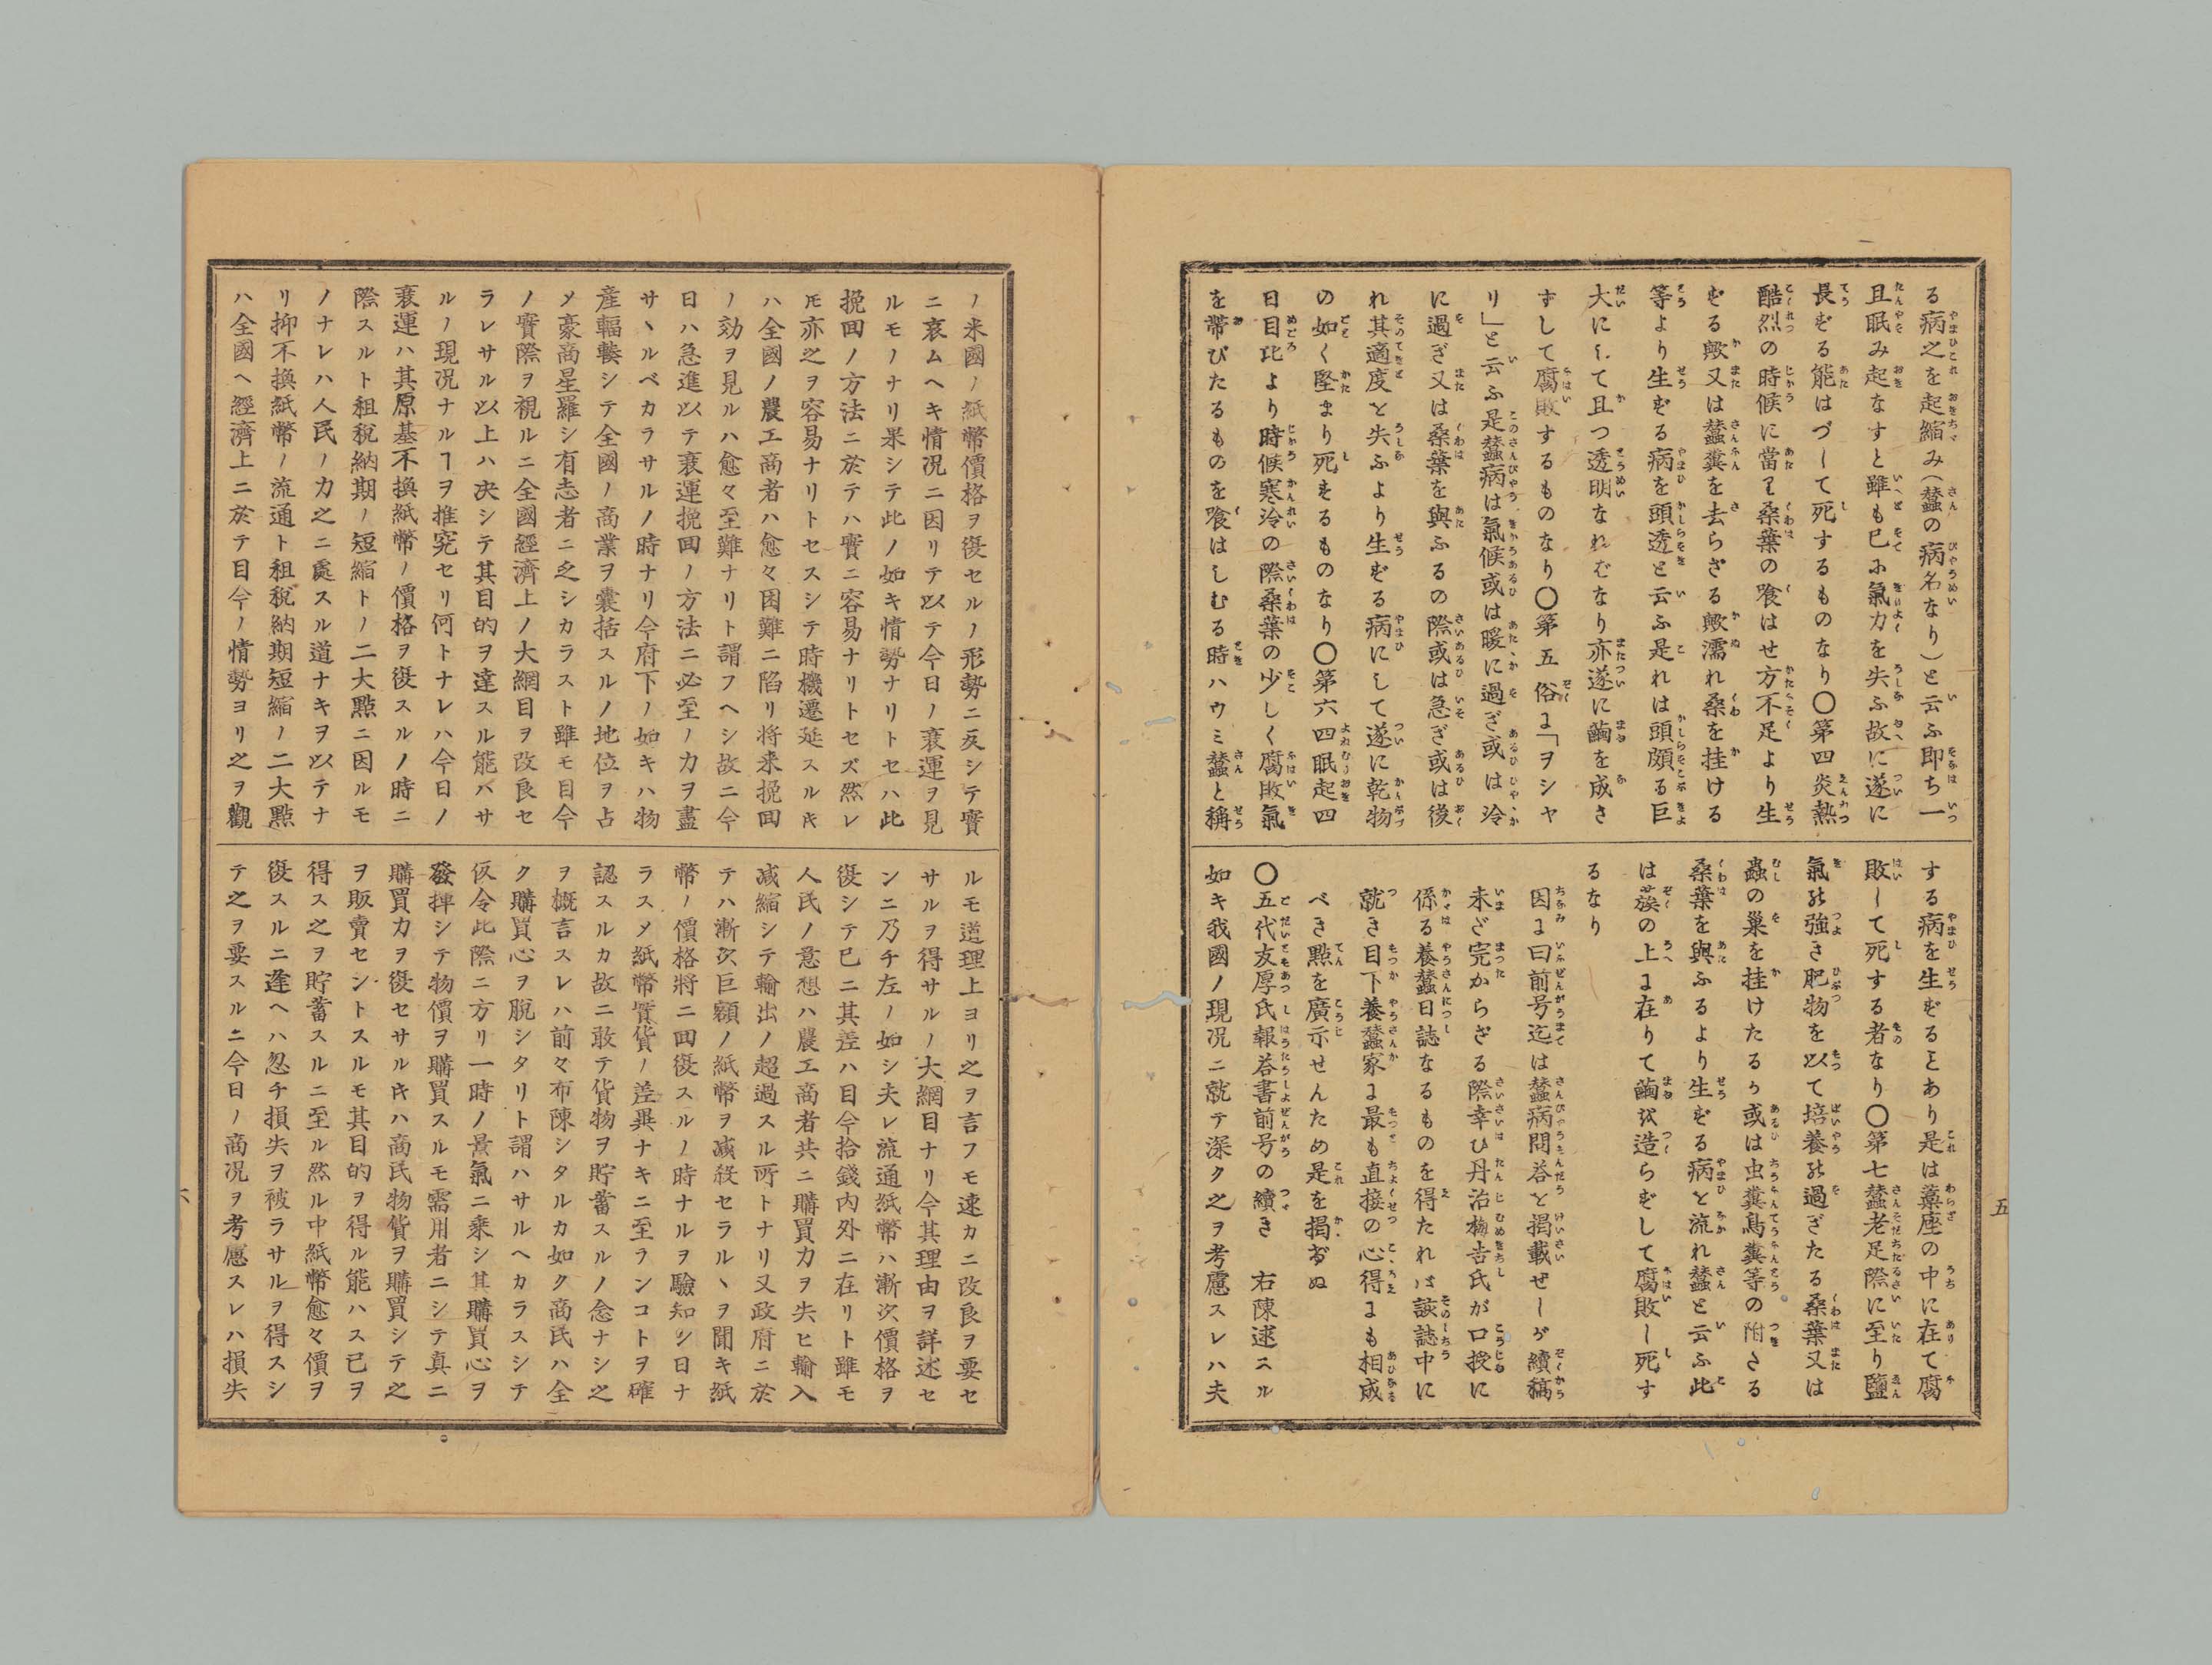 る病之を起縮み(蠶の病名なり)と云ふ即ち一
且眠み起なすと雖も已に氣力を失ふ故に遂に
長ぜる能はずして死するものなり〇第四炎熱
酷烈の時候に當り桑葉の喰はせ方不足より生
ぜる歟又は蠶糞を去らざる歟濡れ桑を挂ける
等より生ぜる病を頭透と云ふ是れは頭頗る巨
大にして且つ透明なればなり亦遂に繭を成さ
ずして腐敗するものなり〇第五俗に「ヲシャ
リ」と云ふ是蠶病は氣候或は暖に過ぎ或は冷
に過ぎ又は桑葉を與ふるの際或は急ぎ或は後
れ其適度を失ふより生ぜる病にして遂に乾物
の如く堅まり死せるものなり〇第六四眠起四
日目比より時候寒冷の際桑葉の少しく腐敗氣
を帶びたるものを喰はしむる時ハウミ蠶と稱
する病を生ぜるとあり是は藁座の中に在て腐
敗して死する者なり〇第七蠶老足際に至り鹽
氣の強き肥物を以て培養の過ぎたる桑葉又は
蟲の巢を挂けたるか或は虫糞鳥糞等の附きる
桑葉を與ふるより生ぜる病を流れ蠶と云ふ此
は蔟の上に在りて繭を造らずして腐敗し死す
るなり
因に曰前号迄は蠶病問答を揭載せしが續稿
未だ完からざる際幸ひ丹治梅吉氏が口授に
係る養蠶日誌なるものを得たれば該誌中に
就き目下養蠶家に最も直接の心得にも相成
べき點を廣示せんため是を揭げぬ
〇五代友厚氏報答書前号の續き 右陳逑スル
如キ我國ノ現況ニ就テ深ク之ヲ考慮スレハ夫
五
ノ米國ノ紙幣價格ヲ復セルノ形勢ニ反シテ實
ニ哀ムヘキ情況ニ因リテ以テ今日ノ衰運ヲ見
ルモノナリ果シテ此ノ如キ情勢ナリトセハ此
挽回ノ方法ニ於テハ實ニ容易ナリトセズ然レ
𪜈亦之ヲ容易ナリトセスシテ時機遷延スルキ
ハ全國ノ農工商者ハ愈々困難ニ陷リ将来挽回
ノ効ヲ見ルハ愈々至難ナリト謂フヘシ故ニ今
日ハ急進以テ衰運挽回ノ方法ニ必至ノ力ヲ盡
サヽルベカラサルノ時ナリ今府下ノ如キハ物
産輻輳シテ全國ノ商業ヲ嚢括スルノ地位ヲ占
メ豪商星羅シ有志者ニ乏シカラスト雖モ目今
ノ實際ヲ視ルニ全國經濟上ノ大網目ヲ改良セ
ラレサル以上ハ決シテ其目的ヲ達スル能バサ
ルノ現況ナルヿヲ推究セリ何トナレハ今日ノ
衰運ハ其原基不換紙幣ノ價格ヲ復スルノ時ニ
際スルト租稅納期ノ短縮トノ二大點ニ因ルモ
ノナレハ人民ノ力之ニ處スル道ナキヲ以テナ
リ抑不換紙幣ノ流通ト租稅納期短縮ノ二大點
ハ全國ヘ經濟上ニ於テ目今ノ情勢ヨリ之ヲ觀
ルモ道理上ヨリ之ヲ言フモ速カニ改良ヲ要セ
サルヲ得サルノ大網目ナリ今其理由ヲ詳述セ
ンニ乃チ左ノ如シ夫レ流通紙幣ハ漸次價格ヲ
復シテ已ニ其差ハ目今拾錢内外ニ在リト雖モ
人民ノ意想ハ農工商者共ニ購買力ヲ失ヒ輸入
減縮シテ輸出ノ超過スル所トナリ又政府ニ於
テハ漸次巨額ノ紙幣ヲ减殺セラルヽヲ聞キ紙
幣ノ價格將ニ回復スルノ時ナルヲ驗知シ日ナ
ラスメ紙幣實貨ノ差異ナキニ至ランコトヲ確
認スルカ故ニ敢テ貨物ヲ貯蓄スルノ念ナシ之
ヲ概言スレハ前々布陳シタルカ如ク商民ハ全
ク購買心ヲ脱シタリト謂ハサルヘカラスシテ
仮令此際ニ方リ一時ノ景氣ニ乗シ其購買心ヲ
發揮シテ物價ヲ購買スルモ需用者ニシテ真ニ
購買力ヲ復セサルキハ商民物貨ヲ購買シテ之
ヲ販賣セントスルモ其目的ヲ得ル能ハス已ヲ
得ス之ヲ貯蓄スルニ至ル然ル中紙幣愈々價ヲ
復スルニ逢ヘハ忽チ損失ヲ被ラサルヲ得スシ
テ之ヲ要スルニ今日ノ商況ヲ考慮スレハ損失
六